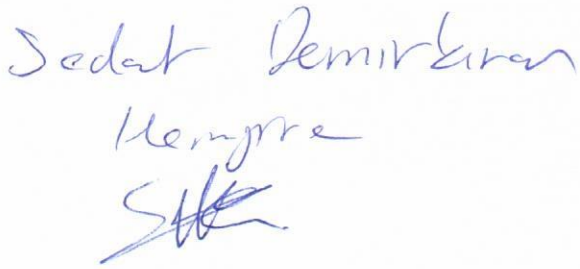 Sedat Demirkıran
Hemşire